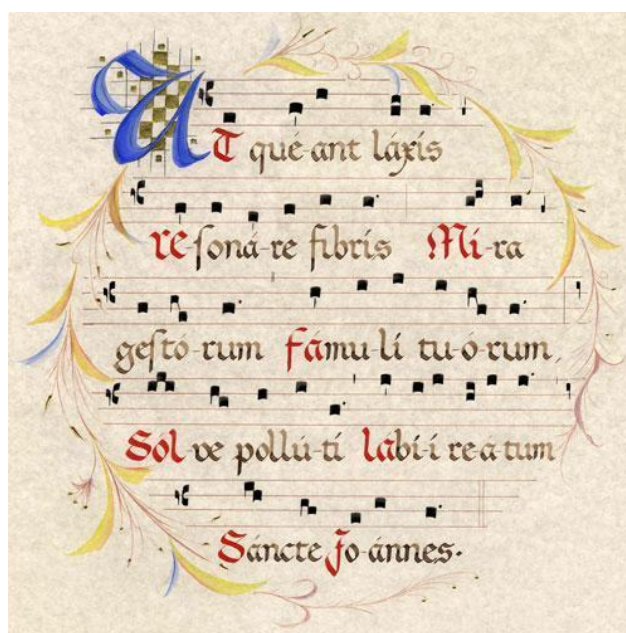 UT qué-ant láxis
re-soná-re fibris Mi-ra
gestó-rum fámu-li tu-ó-rum,
Sol-ve pollú-ti labi-i re-a-tum
Sáncte Jo-ánnes.